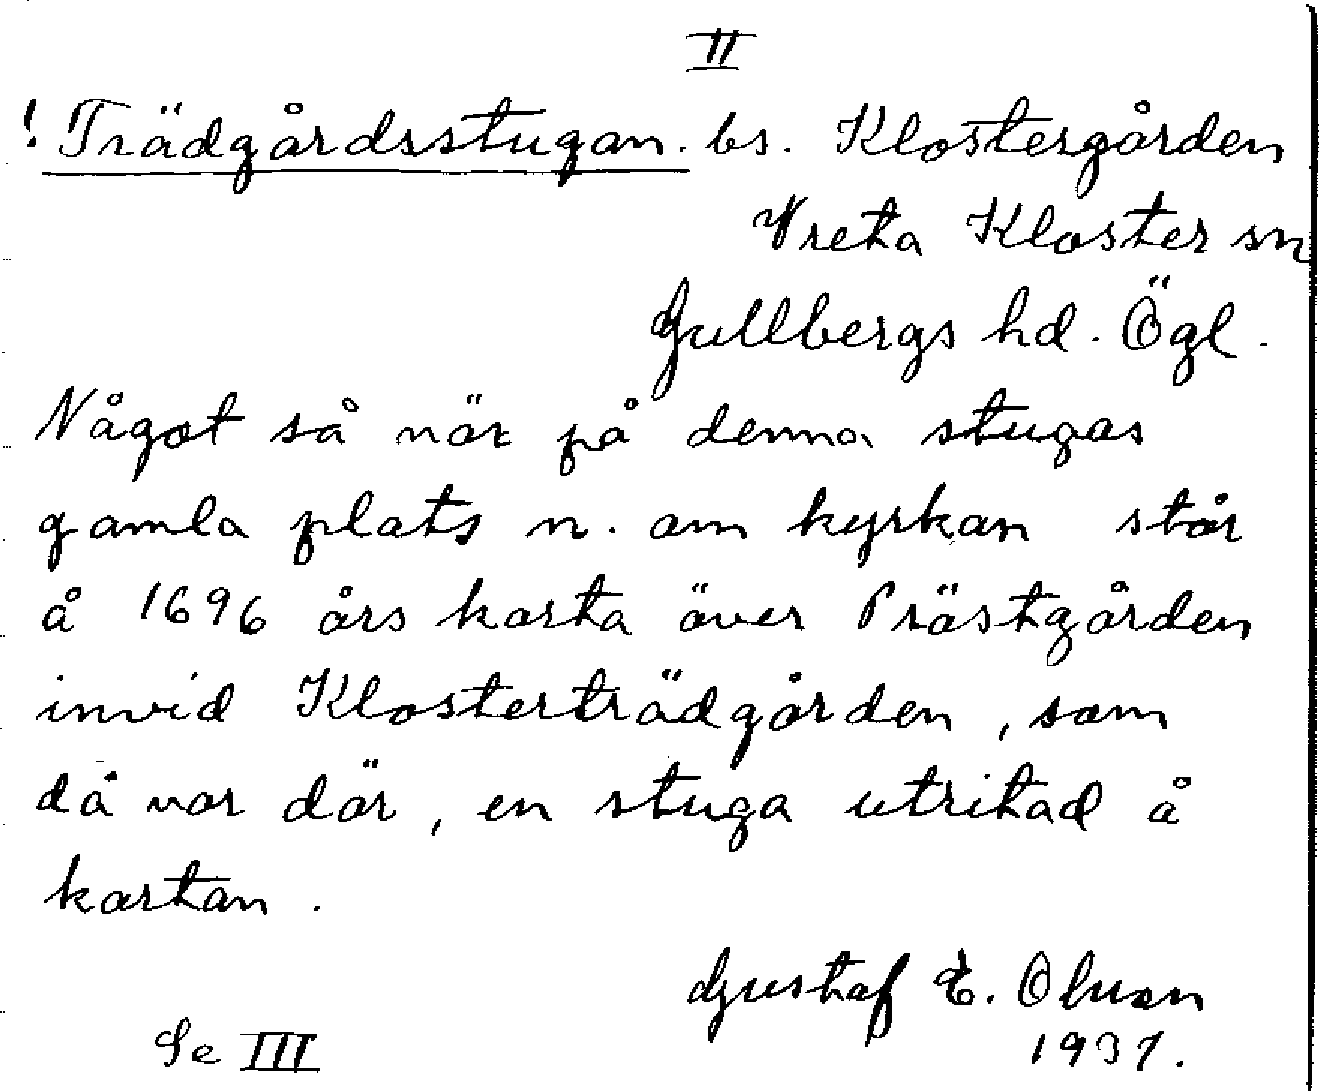 II
! Trädgårdsstugan. bs. Klostergården
Vreta Kloster sn
Gullbergs hd. Ögl.
Något så när på denna stugas
gamla plats n. om kyrkan står
å 1696 års karta över Prästgården
invid Klosterträdgården, som
då var där, en stuga utritad å
kartan.
Gustaf E. Olsson
1937.
Se III